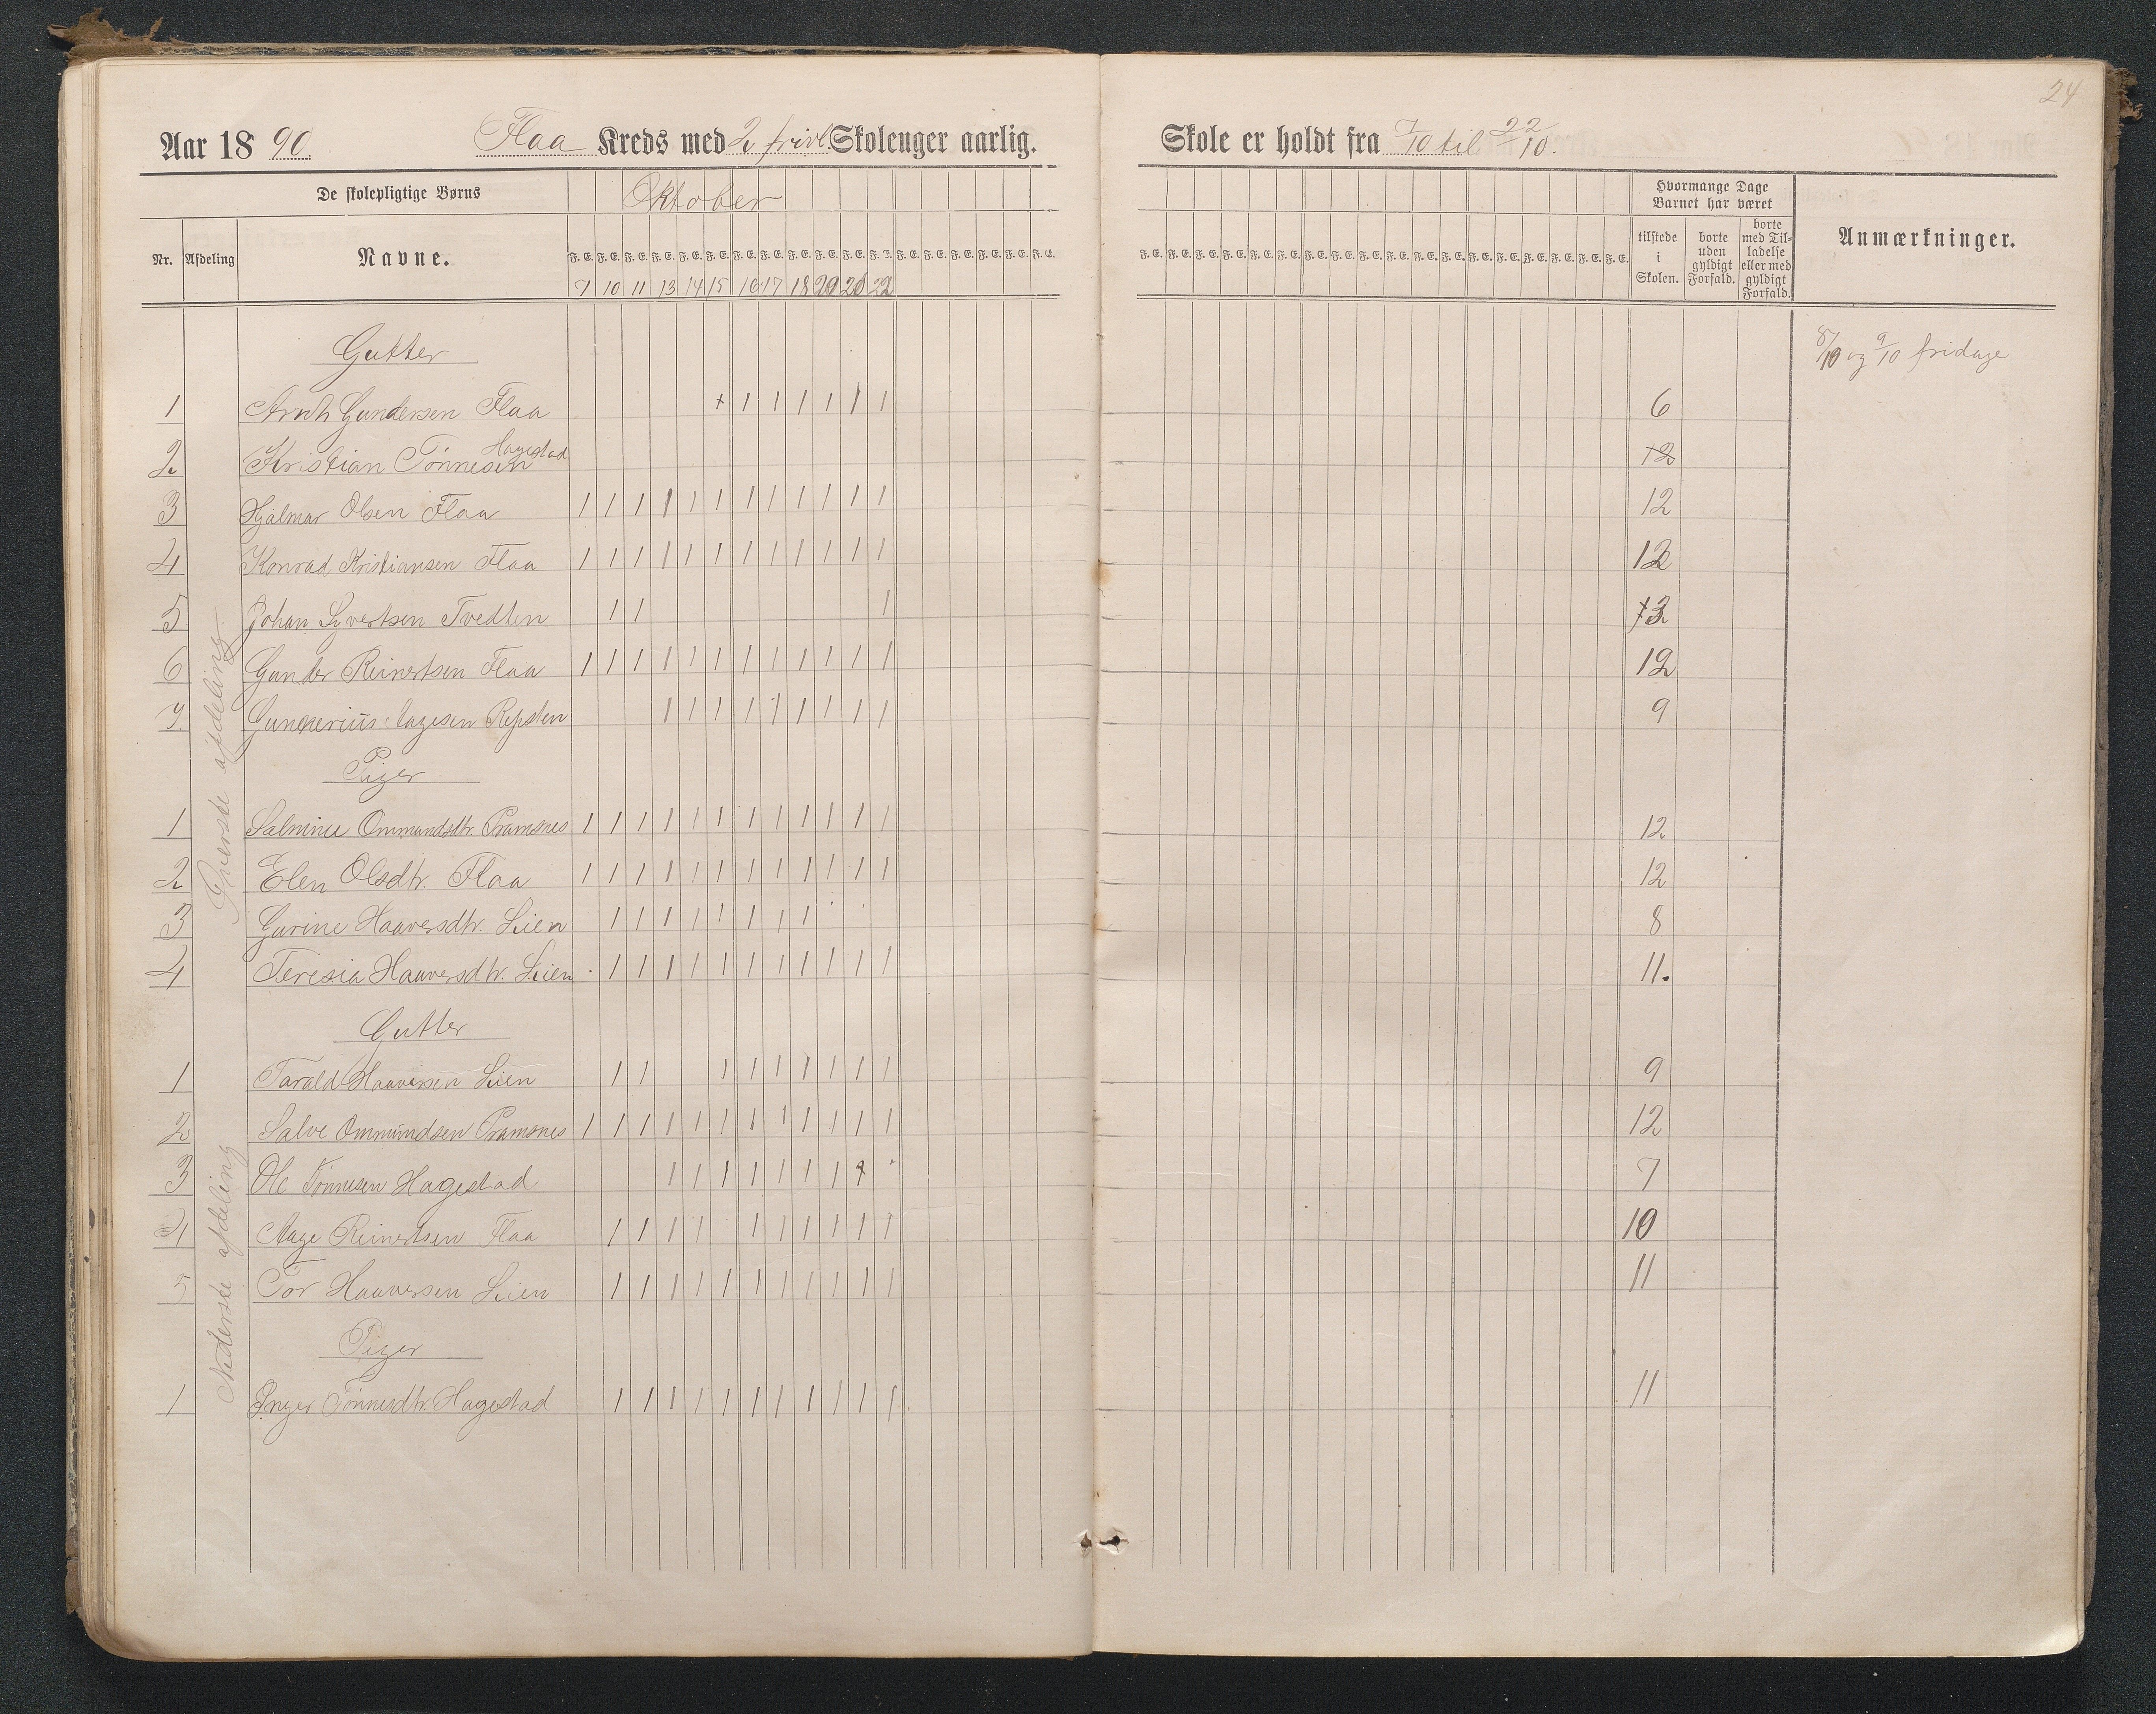 24
Aar 1890. Flaa Kreds med 2 frivl. Skolenger aarlig.
Skole er holdt fra 7/10 til 22/10.
De skolepligtige Børns
Oktober
Hvormange Dage Barnet har været
Nr. Afdeling Navne.
F. E. F. E. F. E. F. E. F. E. F. E. F. E. F. E. F. E. F. E. F. E. F. E. F. E. F. E. F. E. F. E. F. E. F. E.
tilstede i Skolen.
borte uden gyldigt Forfald.
borte med Tilladelse eller med gyldigt Forfald.
Anmærkninger.
7 10 11 13 14 15 16 17 18 20 21 22
Øverste afdeling
Gutter
8/10 og 9/10 fridage
1 Gundersen Flaa + 1 1 1 1 1 1 6
2 Kristian Tønnesen Hagestad
3 Hjalmar Olsen Flaa 1 1 1 1 1 1 1 1 1 1 1 1 12
4 Konrad Kristiansen Flaa 1 1 1 1 1 1 1 1 1 1 1 1 12
5 Johan Syvertsen Tvedten 1 1 1 3
6 Gunder Reinertsen Flaa 1 1 1 1 1 1 1 1 1 1 1 1 12
7. Gunnerius Aagesen Repsten 1 1 1 1 1 1 1 1 1 9
Piger
1 Salmine Ommundsdtr. Pramsnes 1 1 1 1 1 1 1 1 1 1 1 1 12
2 Elen Olsdtr. Flaa 1 1 1 1 1 1 1 1 1 1 1 1 12
3 Gurine Haaversdtr. Lien 1 1 1 1 1 1 1 1 8
4 Teresia Haaversdtr. Lien 1 1 1 1 1 1 1 1 1 1 1 11.
Nederste afdeling
Gutter
1 Tarald Haaversen Lien 1 1 1 1 1 1 1 1 1 9
2 Salve Ommundsen Pramsnes 1 1 1 1 1 1 1 1 1 1 1 1 12
3 Ole Tønnesen Hagestad 1 1 1 1 1 1 1 7
4 Aage Reinertsen Flaa 1 1 1 1 1 1 1 1 1 1 10
5 Tor Haaversen Lien 1 1 1 1 1 1 1 1 1 1 1 11
Piger
1 Inger Tønnesdtr. Hagestad 1 1 1 1 1 1 1 1 1 1 1 11